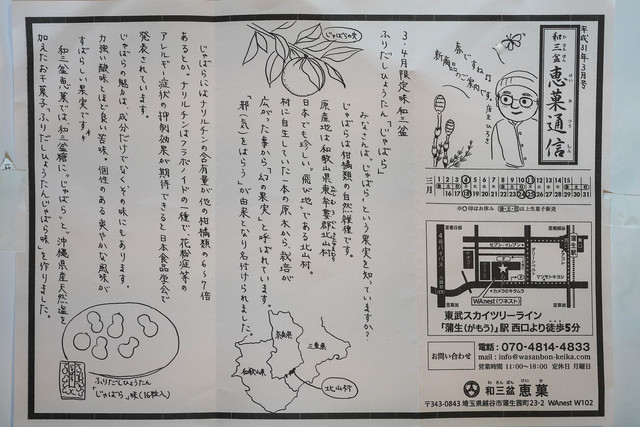 平成31年3月号
和三盆 恵菓通信
わさんぼん けいかつうしん
春ですね♪
新商品のご案内です。店主ひろき
三月
1 2 3 4 5 6 7 8 9 10 11 12 13 14 15
16 17 18 19 20 21 22 23 24 25 26 27 28 29 30 31
※○印はお休み 金・土・日は上生菓子販売
4号バイパス
マツモトキヨシ
カメラのキタムラ
WAnest(ワネスト)
至草加
東武スカイツリーライン
「蒲生(がもう)」駅 西口より徒歩5分
お問い合わせ
電話:070-4814-4833
mail : info@wasanbon-keika.com
営業時間 11:00〜18:00 定休日 月曜日
わさんぼん けいか
和三盆 恵菓
〒343-0843 埼玉県越谷市蒲生茜町23-2 WAnest W102
3・4月限定味和三盆
ふりだしひょうたん「じゃばら」
みなさんは、じゃばらという果実を知っていますか?
じゃばらは柑橘類の自然雑種です。
原産地は和歌山県東牟婁郡北山村
日本でも珍しい“飛び地”である北山村。
村に自生していた一本の原木から、栽培が
広がった事から「幻の果実」と呼ばれています。
「邪(気)をはらう」が由来となり名付けられました。
じゃばらの実
奈良県
三重県
和歌山県
北山村
じゃばらにはナリルチンの含有量が他の柑橘類の6〜7倍
あるとか。ナリルチンはフラボノイドの一種で、花粉症等の
アレルギー症状の抑制効果が期待できると日本食品学会で
発表されています。
じゃばらの魅力は、成分だけでなく、その味にもあります。
力強い酸味とほど良い苦味。個性のある爽やかな風味が
すばらしい果実です。
和三盆恵菓では、和三盆糖に、“じゃばら”と、沖縄県産天然塩を
加えたお干菓子“ふりだしひょうたんじゃばら味”を作りました。
ふりだしひょうたん
「じゃばら」味(16粒入)